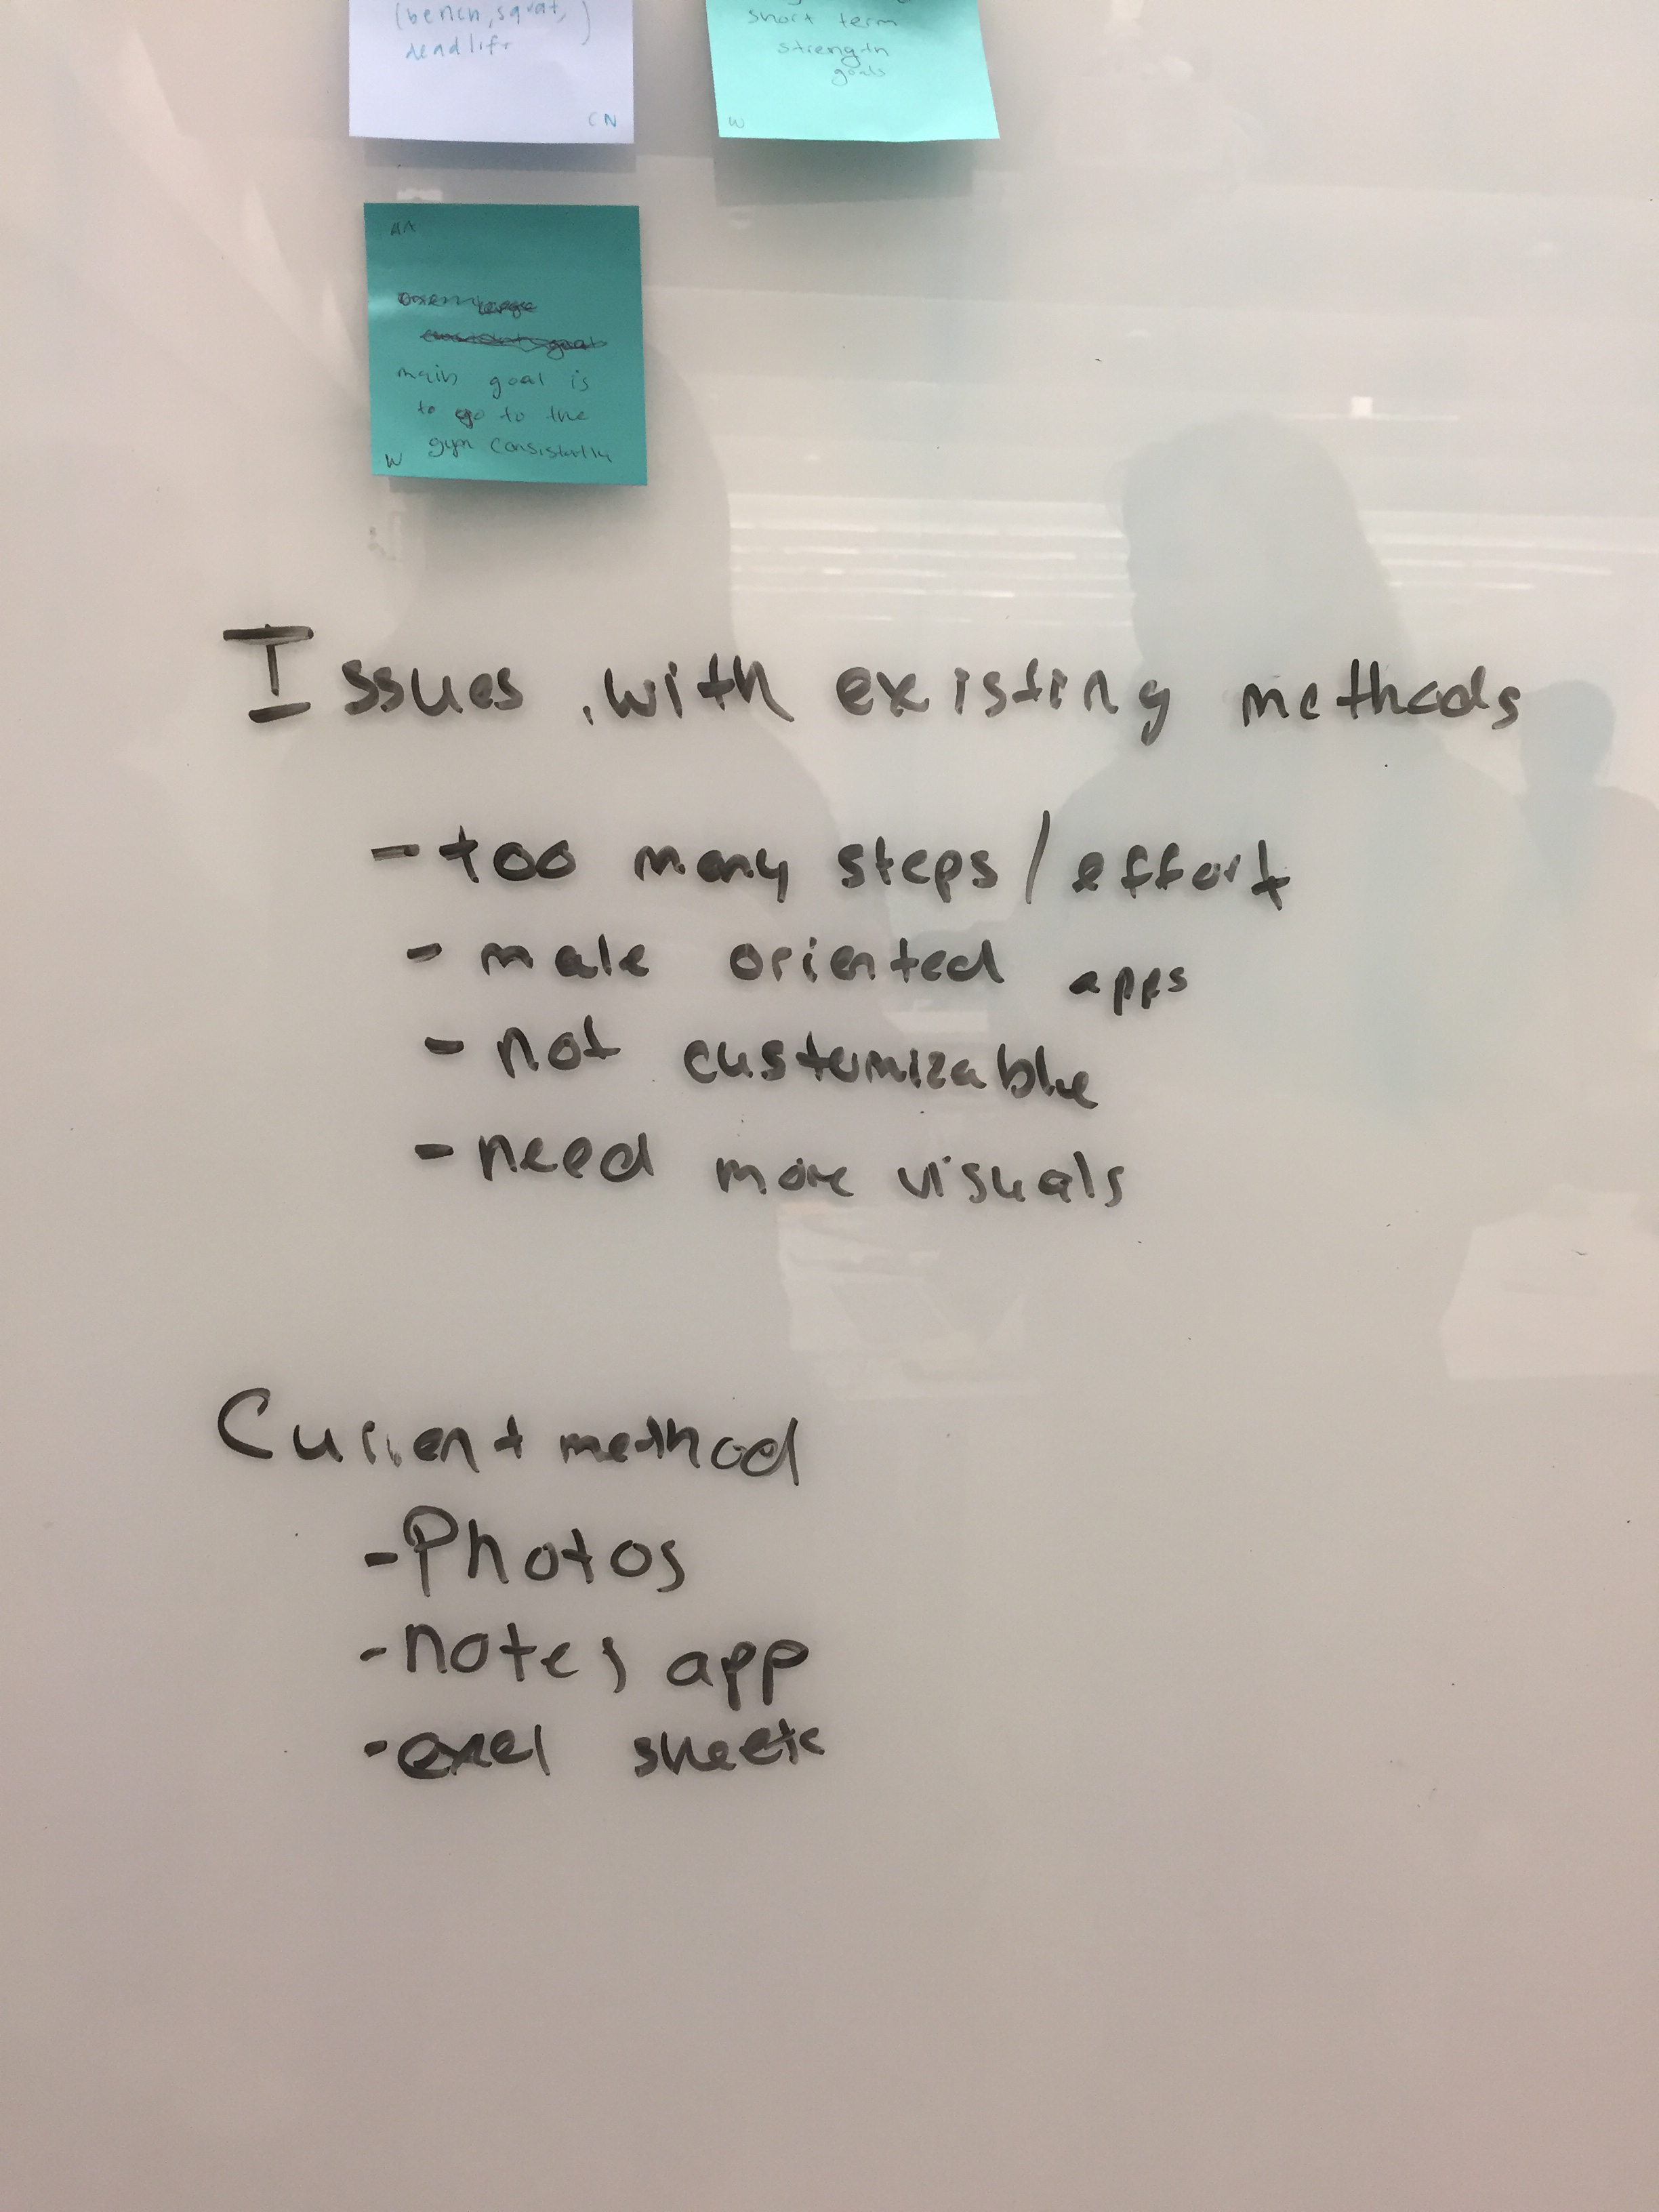 (bench, squat,)
deadlift
CN
short term
strength
goals
W
AA
main goal is
to go to the
gym consistently
W
Issues with existing methods
- too many steps / effort
- male oriented apps
- not customizable
- need more visuals
Current method
- Photos
- notes app
- exel sheets